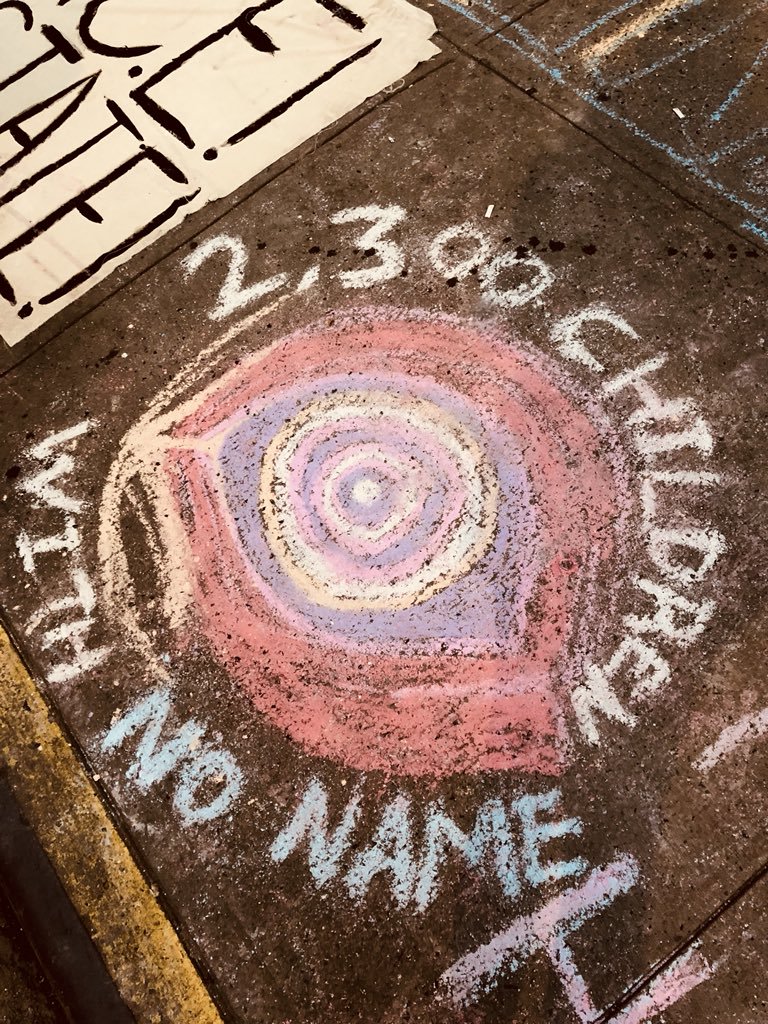 C.E.!
TATE!
2,300 CHILDREN
WITH
NO NAME